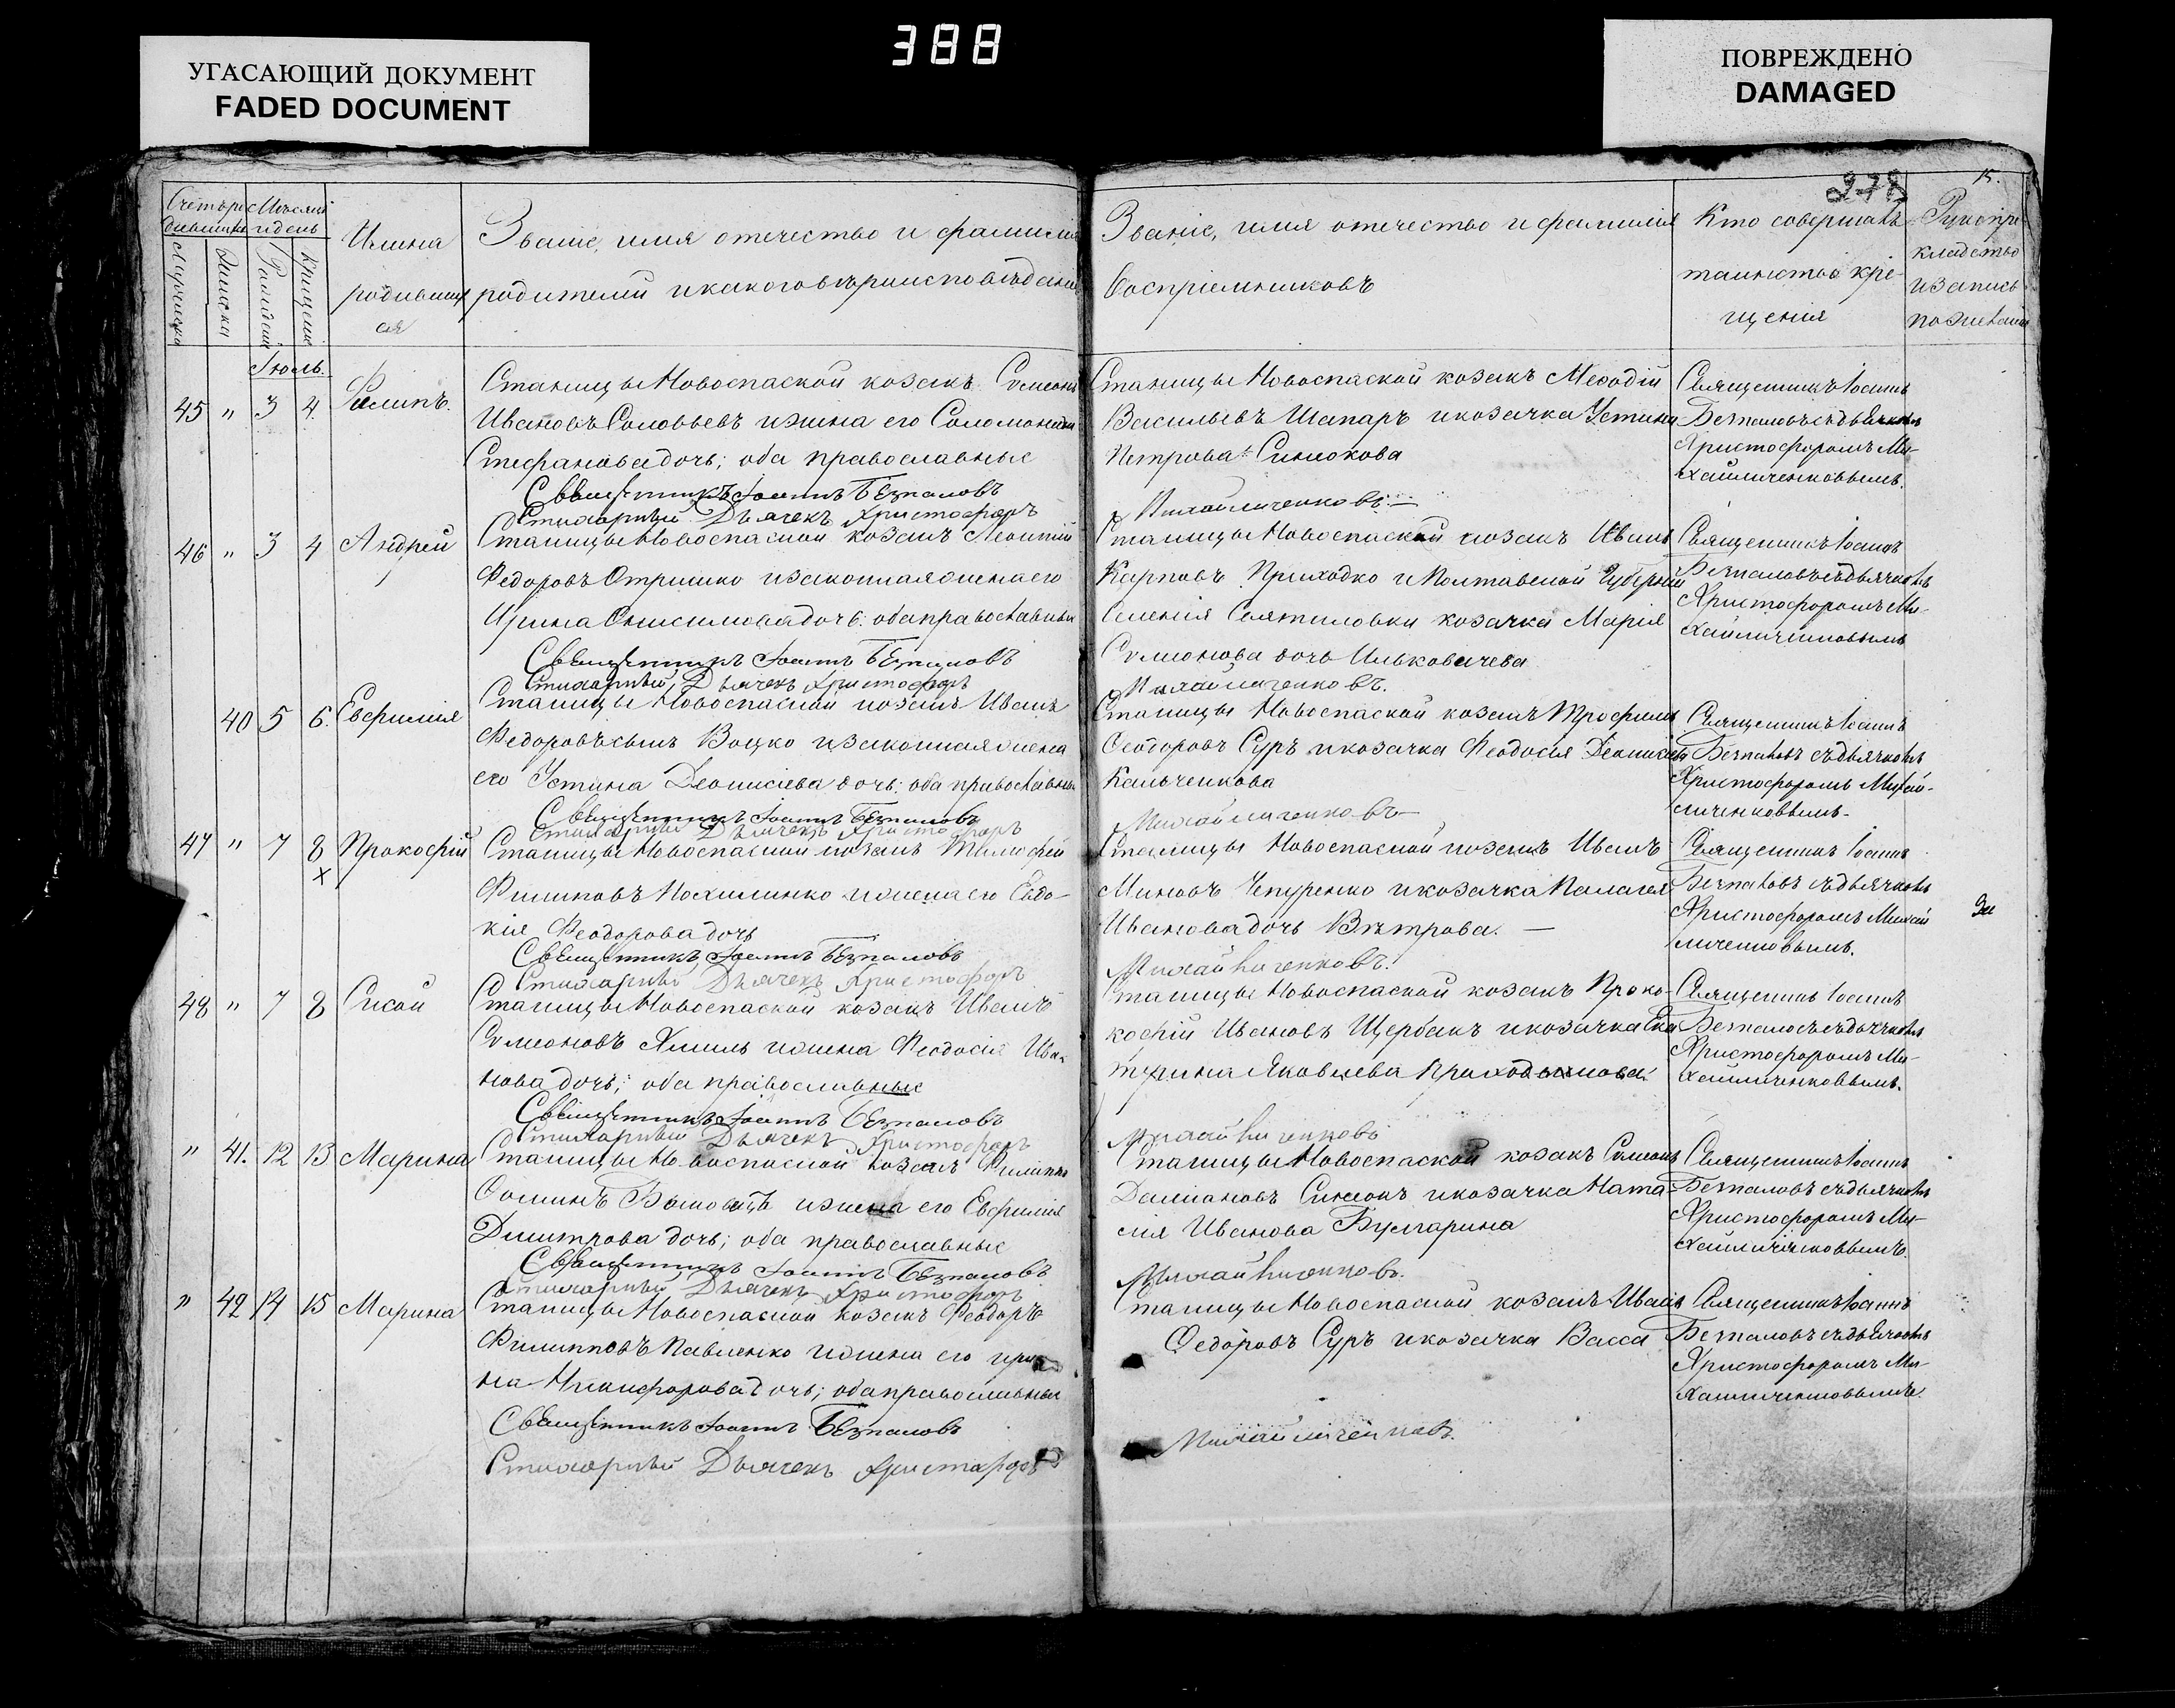 388
УГАСАЮЩИЙ ДОКУМЕНТ
FADED DOCUMENT
ПОВРЕЖДЕНО
DAMAGED
278
15.
Мѣсяцъ
и день
Имена
родивших
ся
Званіе, имя отечество и фамилія
родителей и какого вѣроисповѣданія
Званіе, имя отечество и фамилія
Воспріемниковъ
Кто совершалъ
таинство кре-
щенія
Рукопри-
кладство
записи
Іюль.
45 " 3 4 Филипъ.
Станицы Новоспаской козакъ Симеонъ
Ивановъ Соловьевъ и жена его Соломонида
Стефанова дочь; оба православные
Священникъ Іоаннъ Безпаловъ
Стихарный Дьячекъ Христофоръ
Станицы Новоспаской козакъ Меѳодій
Васильевъ Шапаръ и козачка Устина
Петрова Синюкова
Михайличенковъ.
Священникъ Іоаннъ
Безпаловъ съ дьячкомъ
Христофоромъ Ми-
хайличенковымъ.
46 " 3 4 Андрей
Станицы Новоспаской козакъ Леонтій
Федоровъ Отришко и законная жена его
Ирина Онисимова дочь: оба православные
Священникъ Іоаннъ Безпаловъ
Стихарный Дьячекъ Христофоръ
Станицы Новоспаской козакъ Иванъ
Карповъ Приходко и Полтавской Губерніи
Селенія козачка Марія
Симионова дочь
Михайличенковъ.
Священникъ Іоаннъ
Безпаловъ съ дьячкомъ
Христофоромъ Ми-
хайличенковымъ
40 5 6. Евфимія
Станицы Новоспаской козакъ Иванъ
Федоровъ сынъ Воцко и законная жена
его Устина Деонисіева дочь: оба православные
Священникъ Іоаннъ Безпаловъ
Стихарный Дьячекъ Христофоръ
Станицы Новоспаской козакъ Трофимъ
Феодоровъ Суръ и козачка Феодосія
Кальченкова
Михайличенковъ
Священникъ Іоаннъ
Безпаловъ съ дьячкомъ
Христофоромъ Михай-
личенковымъ.
47 " 7 8 Прокофій
х
Станицы Новоспаской козакъ Тимофей
Филиповъ и жена его Евдо-
кія Феодорова дочь
Священникъ Іоаннъ Безпаловъ
Стихарный Дьячекъ Христофоръ
Станицы Новоспаской козакъ Иванъ
Миновъ Чепуренко и козачка Палагея
Иванова дочь Вѣтрова. —
Михайличенковъ.
Священникъ Іоаннъ
Безпаловъ съ дьячкомъ
Христофоромъ Михай
личенковымъ.
48 " 7 8 Сисой
Станицы Новоспаской козакъ Иванъ
Симеоновъ Хмиль и жена Феодосія Ива-
нова дочь; оба православные
Священникъ Іоаннъ Безпаловъ
Стихарный Дьячекъ Христофоръ
Станицы Новоспаской козакъ Проко-
кофій Ивановъ Щербакъ и козачка Ека
терина Яковлева
Михайличенковъ
Священникъ Іоаннъ
Безпаловъ съ дьячкомъ
Христофоромъ Ми-
хайличенковымъ.
" 41. 12 13 Марина
Станицы Новоспаской козакъ Филиппъ
Фоминъ и жена его Евфимія
Димитрова дочь; оба православные
Священникъ Іоаннъ Безпаловъ
Стихарный Дьячекъ Христофоръ
Станицы Новоспаской козакъ Симеонъ
Даміановъ Синюкъ и козачка Ната-
лія Иванова Булгарина
Михайличенковъ.
Священникъ Іоаннъ
Безпаловъ съ дьячкомъ
Христофоромъ Ми-
хайличенковымъ.
" 42 14 15 Марина
Станицы Новоспаской козакъ Феодоръ
Филипповъ Павленко и жена его Ири
на Никифорова дочь; оба православные
Священникъ Іоаннъ Безпаловъ
Стихарный Дьячекъ Христофоръ
Станицы Новоспаской козакъ Иванъ
Федоровъ Суръ и козачка Васса
Михайличенковъ.
Священникъ Іоаннъ
Безпаловъ съ дьячкомъ
Христофоромъ Ми-
хайличенковымъ.